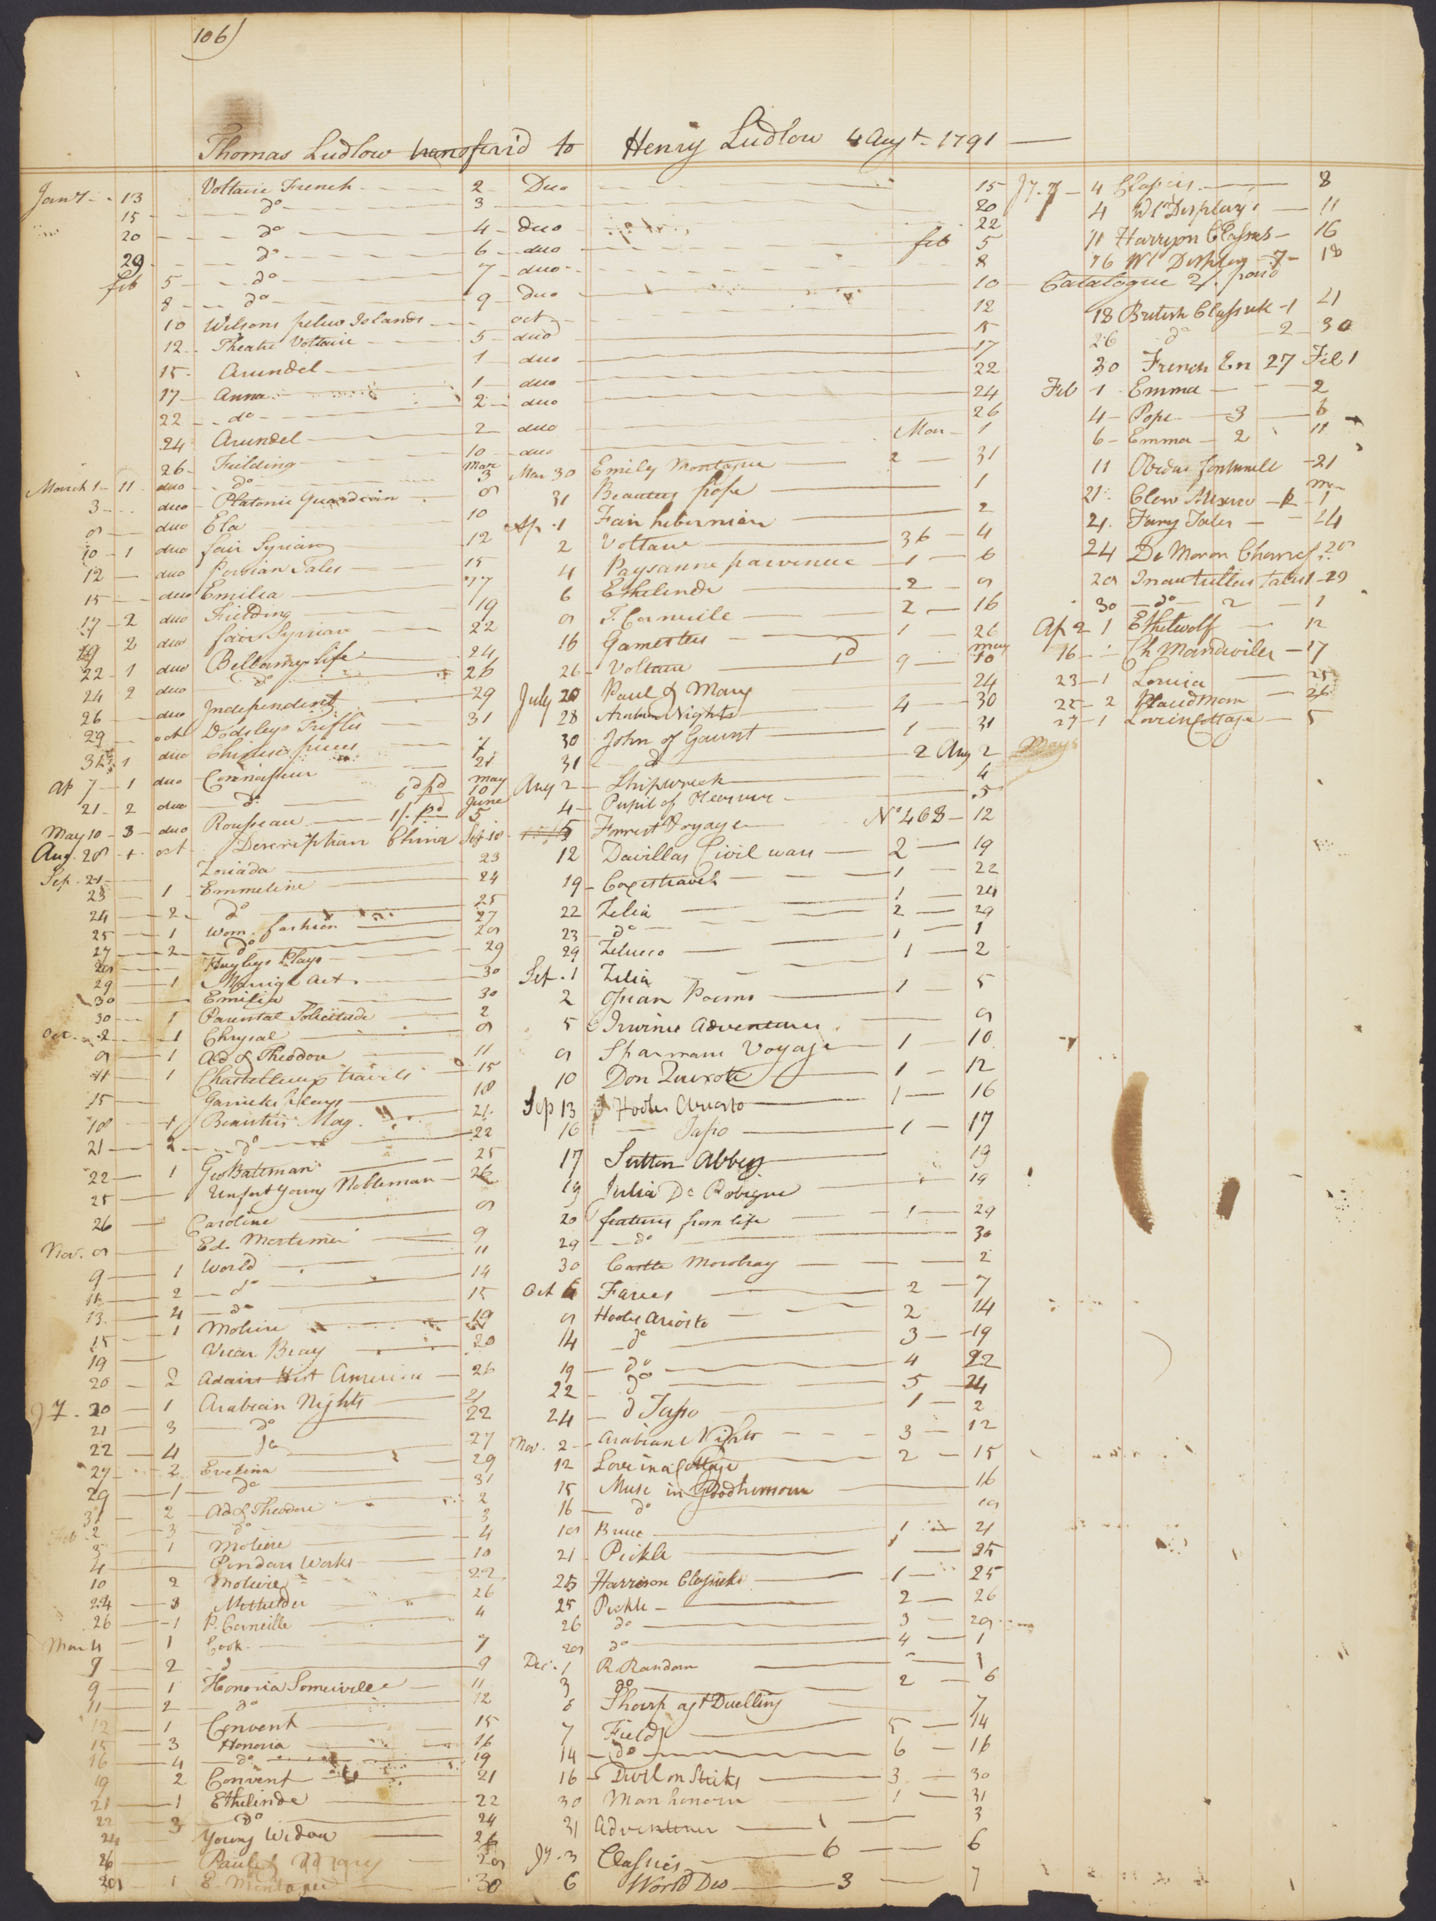 106)
Thomas Ludlow transferr'd to Henry Ludlow 4 Augt. 1791
Jany 13 Voltaire French 2 Duo 15
15 do 3 20
20 do 4 duo 22
29 do 6 duo feb 5
feb 5 do 7 duo 8
8 do 9 duo 10
10 Wilsons pelew Islands oct 12
12 Theatre Voltaire 5 duo 15
15 Arundel 1 duo 17
17 Anna 1 duo 22
22 do 2 duo 24
24 Arundel 2 duo 26
26 Fielding 10 duo Mar 1
March 1 11 duo do Mar 3
3 duo Platonic Guardian 8
8 duo Ela 10
10 1 duo fair Syrian 12
12 duo Persian Tales 15
15 duo Emilia 17
17 2 duo Fielding 19
19 2 duo fair Syrian 22
22 1 duo Bellamys life 24
24 2 duo do 26
26 duo Independent 29
29 oct Dodsleys Trifles 31
31 1 duo Chinese pieces 7
Ap 7 1 duo Connoisseur 21
21 2 duo do 6d pd May 10
May 10 3 duo Rousseau 1/. pd June 5
Aug. 28 1 oct Description China Sep 10
Sep. 21 Zoriada 23
23 1 Emmeline 24
24 2 do 25
25 1 Wom. fashion 27
27 2 do 28
28 Hughes Plays 29
29 1 Marriage Act 30
30 Emilia 30
30 1 Parental Solicitude 2
Oct. 2 1 Chrysal 8
8 1 Ad & Theodore 11
11 1 Chastelleux travels 15
15 Garricks Plays 18
18 1 Beauties Mag. 21
21 2 do 22
22 1 Geo Bateman 25
25 Unfort Young Nobleman 26
26 Caroline 8
Nov. 8 Ed. Mortimer 9
9 1 World 11
11 2 do 14
13 4 do 15
15 1 Moliere 19
19 Vicar Bray 20
20 2 Adairs Hist America 26
Jy. 20 1 Arabian Nights 21
21 3 do 22
22 4 do 27
27 2 Evelina 29
29 1 do 31
31 2 Ad & Theodore 2
Feb 2 3 do 3
3 1 Moliere 4
4 Pindars Works 10
10 2 Moliere 22
24 3 26
26 1 P. Corneille 4
Mar 4 1 Cook 7
7 2 do 9
9 1 Honoria Somerville 11
11 2 do 12
12 1 Convent 15
15 3 Honoria 16
16 4 do 19
19 2 Convent 21
21 1 Ethelinde 22
22 3 do 24
24 Young Widow 26
26 Paul & Mary 28
28 1 E Montague 30
Mar 30 Emily Montague 2 31
31 Beauties pope 1
Ap. 1 Fair hibernian 2
2 Voltaire 36 4
4 Paysanne parvenue 1 6
6 Ethelinde 2 8
8 T. Corneille 2 16
16 Gamesters 1 26
26 Voltaire 9 May 10
July 20 Paul & Mary 24
28 Arabian Nights 4 30
30 John of Gaunt 1 31
31 do 2 Aug 2
Aug 2 Shipwreck 4
4 Pupil of Pleasure 5
5 Forrest Voyage No. 468 12
12 Davillas Civil wars 2 19
19 Coxes travels 1 22
22 Zelia 1 24
23 do 2 29
29 Zeluco 1 1
Sep. 1 Zelia 1 2
2 Ossian Poems 1 5
5 Irwines Adventures 8
8 Sparmans Voyage 1 10
10 Don Quixote 1 12
Sep 13 Hooles Ariosto 1 16
16 Tasso 1 17
17 Sutton Abbey 19
19 Julia De Robigne 19
20 features from life 1 29
29 do 30
30 Castle Mowbray 2
Oct 6 Farces 2 7
8 Hooles Ariosto 2 14
14 do 3 19
19 do 4 22
22 do 5 24
24 do Tasso 1 2
Nov. 2 Arabian Nights 3 12
12 Love in a Cottage 2 15
15 Muse in Goodhumour 16
16 do 18
18 Bruce 1 21
21 Pickle 1 25
25 Harrison Classicks 1 25
25 Pickle 2 26
26 do 3 29
28 do 4 1
Dec. 1 R. Random
3 do 2 6
6 Sharp agt Duelling 7
7 Field 5 14
14 do 6 16
16 Devil on Sticks 3 30
30 Man honour 1 31
31 Adventurer 1 3
Jy. 3 Classics 6 6
6 World Dis 3 7
Jy. 7 4 Classics 8
4 Ws Display 11
11 Harrison Classics 16
16 Ws Display 7 18
Catalogue 2/. paid
18 British Classick 1 21
26 do 2 30
30 French En 27 Feb 1
Feb 1 Emma 2
4 Pope 3 6
6 Emma 2 11
11 21
21
21 Fairy Tales 24
24 28
28 29
30 do 2 1
Ap 2 1 Ethelwolf 12
16 Ch Mandeviles 17
23 1 Louisa 25
25 2 Placid Man 26
27 1 Love in Cottage 5
May 5